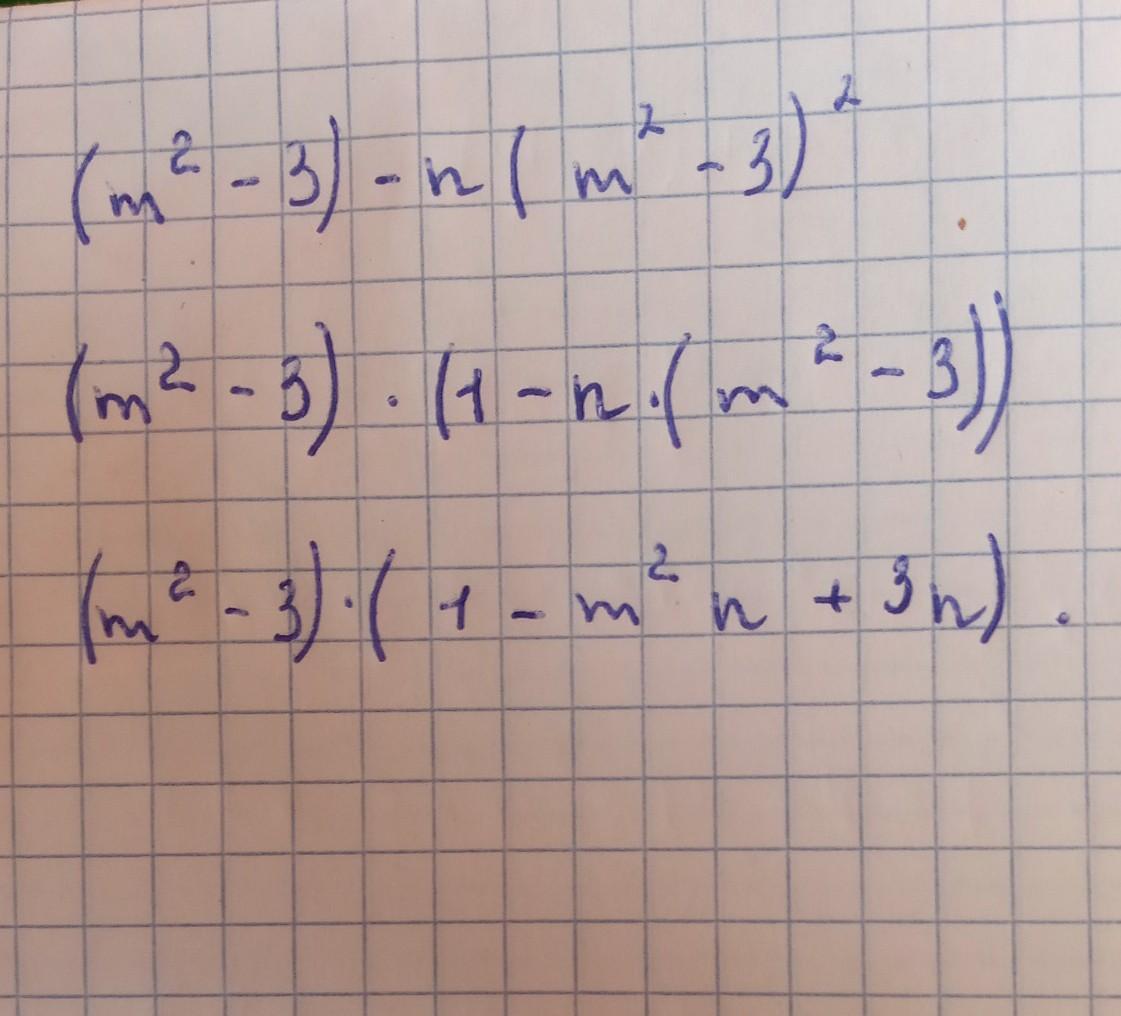 (m² - 3) - n (m² - 3)²
(m² - 3) · (1 - n · (m² - 3))
(m² - 3) · (1 - m² n + 3n) .